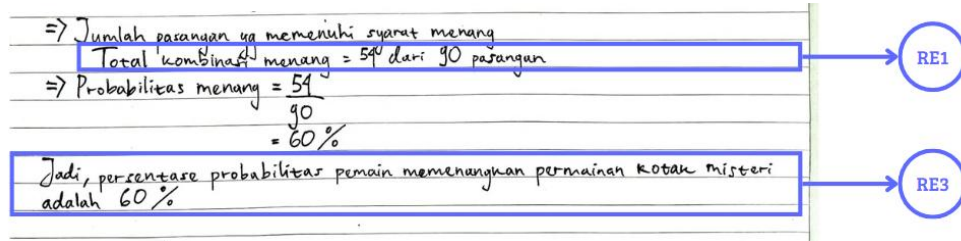 => Jumlah pasangan yg memenuhi syarat menang
Total kombinasi menang = 54 dari 90 pasangan
RE1
=> Probabilitas menang = 54
90
= 60%
Jadi, persentase probabilitas pemain memenangkan permainan kotak misteri
adalah 60%
RE3